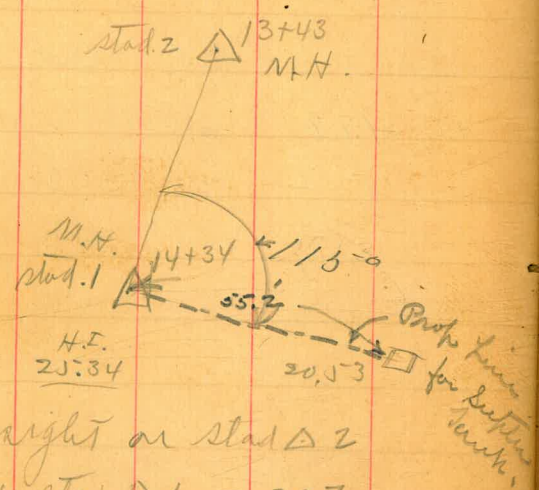 stad. 2 13+43
M.H.
M.H.
stad. 1 14+34
115°
55.2'
H.I.
25.34
20.53
Prop Line
for Septic
Tank.
sight on stad △ 2